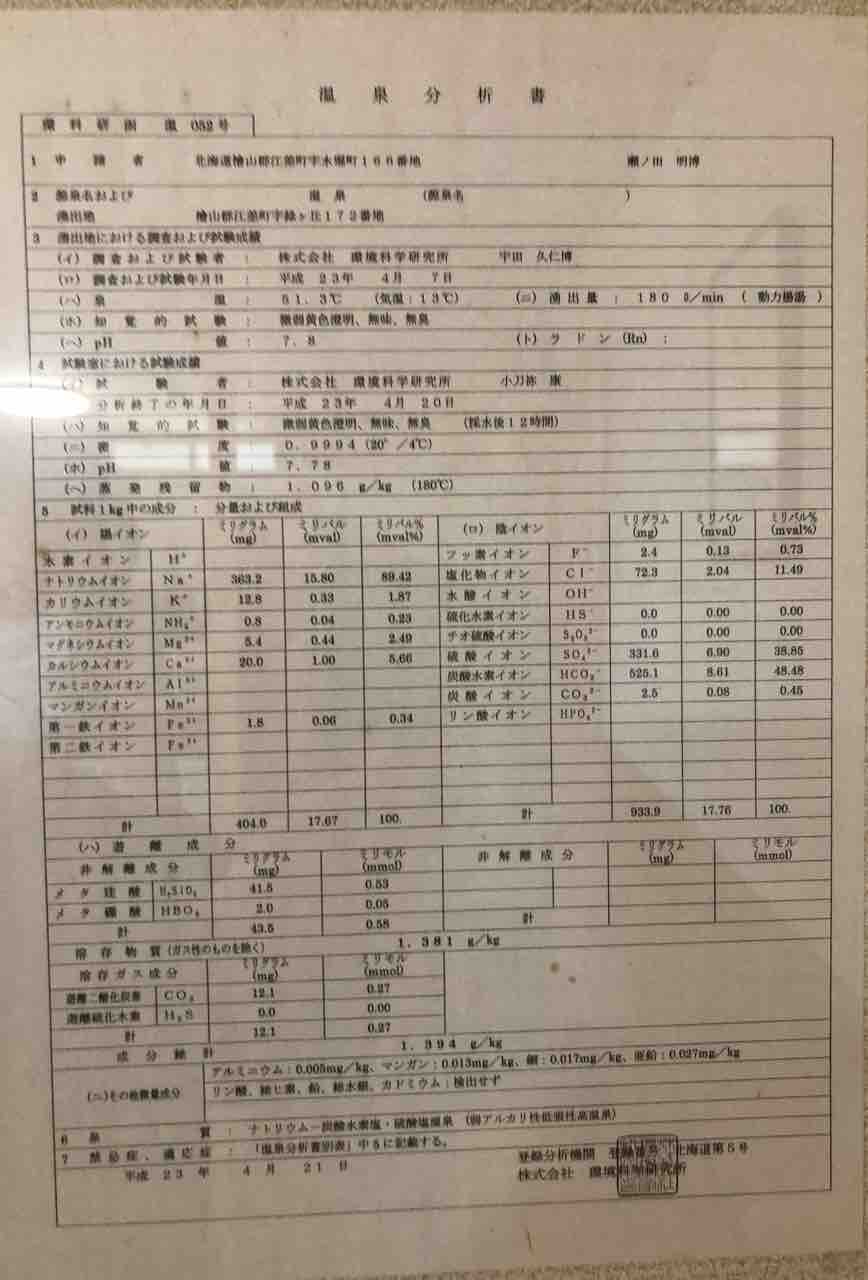 温泉分析書
環科研函 温 052号
1 申請者 北海道檜山郡江差町字水堀町166番地 明博
2 源泉名および 温泉 (源泉名 )
湧出地 檜山郡江差町字緑ヶ丘172番地
3 湧出地における調査および試験成績
(イ) 調査および試験者 : 株式会社 環境科学研究所 宇田 久仁博
(ロ) 調査および試験年月日 : 平成 23年 4月 7日
(ハ) 泉温 : 51.3℃ (気温:13℃) (ニ) 湧出量 : 180 ℓ/min ( 動力揚湯 )
(ホ) 知覚的試験 : 微弱黄色澄明、無味、無臭
(ヘ) pH値 : 7.8 (ト) ラドン (Rn) :
4 試験室における試験成績
(イ) 試験者 : 株式会社 環境科学研究所 小刀祢 康
分析終了の年月日 : 平成 23年 4月 20日
(ハ) 知覚的試験 : 微弱黄色澄明、無味、無臭 (採水後12時間)
(ニ) 密度 : 0.9994 (20°/4℃)
(ホ) pH値 : 7.78
(ヘ) 蒸発残留物 : 1.096 g/kg (180℃)
5 試料1kg中の成分 : 分量および組成
(イ) 陽イオン ミリグラム (mg) ミリバル (mval) ミリバル% (mval%) (ロ) 陰イオン ミリグラム (mg) ミリバル (mval) ミリバル% (mval%)
水素イオン H⁺ フッ素イオン F⁻ 2.4 0.13 0.73
ナトリウムイオン Na⁺ 363.2 15.80 89.42 塩化物イオン Cl⁻ 72.3 2.04 11.49
カリウムイオン K⁺ 12.8 0.33 1.87 水酸イオン OH⁻
アンモニウムイオン NH₄⁺ 0.8 0.04 0.23 硫化水素イオン HS⁻ 0.0 0.00 0.00
マグネシウムイオン Mg²⁺ 5.4 0.44 2.49 チオ硫酸イオン S₂O₃²⁻ 0.0 0.00 0.00
カルシウムイオン Ca²⁺ 20.0 1.00 5.66 硫酸イオン SO₄²⁻ 331.6 6.90 38.85
アルミニウムイオン Al³⁺ 炭酸水素イオン HCO₃⁻ 525.1 8.61 48.48
マンガンイオン Mn²⁺ 炭酸イオン CO₃²⁻ 2.5 0.08 0.45
第一鉄イオン Fe²⁺ 1.8 0.06 0.34 リン酸イオン HPO₄²⁻
第二鉄イオン Fe³⁺
計 404.0 17.67 100. 計 933.9 17.76 100.
(ハ) 遊離成分
非解離成分 ミリグラム (mg) ミリモル (mmol) 非解離成分 ミリグラム (mg) ミリモル (mmol)
メタ珪酸 H₂SiO₃ 41.5 0.53
メタ硼酸 HBO₂ 2.0 0.05
計 43.5 0.58 計
溶存物質 (ガス性のものを除く) 1.381 g/kg
溶存ガス成分 ミリグラム (mg) ミリモル (mmol)
遊離二酸化炭素 CO₂ 12.1 0.27
遊離硫化水素 H₂S 0.0 0.00
計 12.1 0.27
成分総計 1.394 g/kg
(ニ)その他微量成分 アルミニウム:0.005mg/kg、マンガン:0.013mg/kg、銅:0.017mg/kg、亜鉛:0.027mg/kg
リン酸、総ヒ素、鉛、総水銀、カドミウム:検出せず
6 泉質 : ナトリウム-炭酸水素塩・硫酸塩温泉 (弱アルカリ性低張性高温泉)
7 禁忌症、適応症 : 「温泉分析書別表」中5に記載する。
平成 23年 4月 21日
登録分析機関 登録番号 北海道第5号
株式会社 環境科学研究所